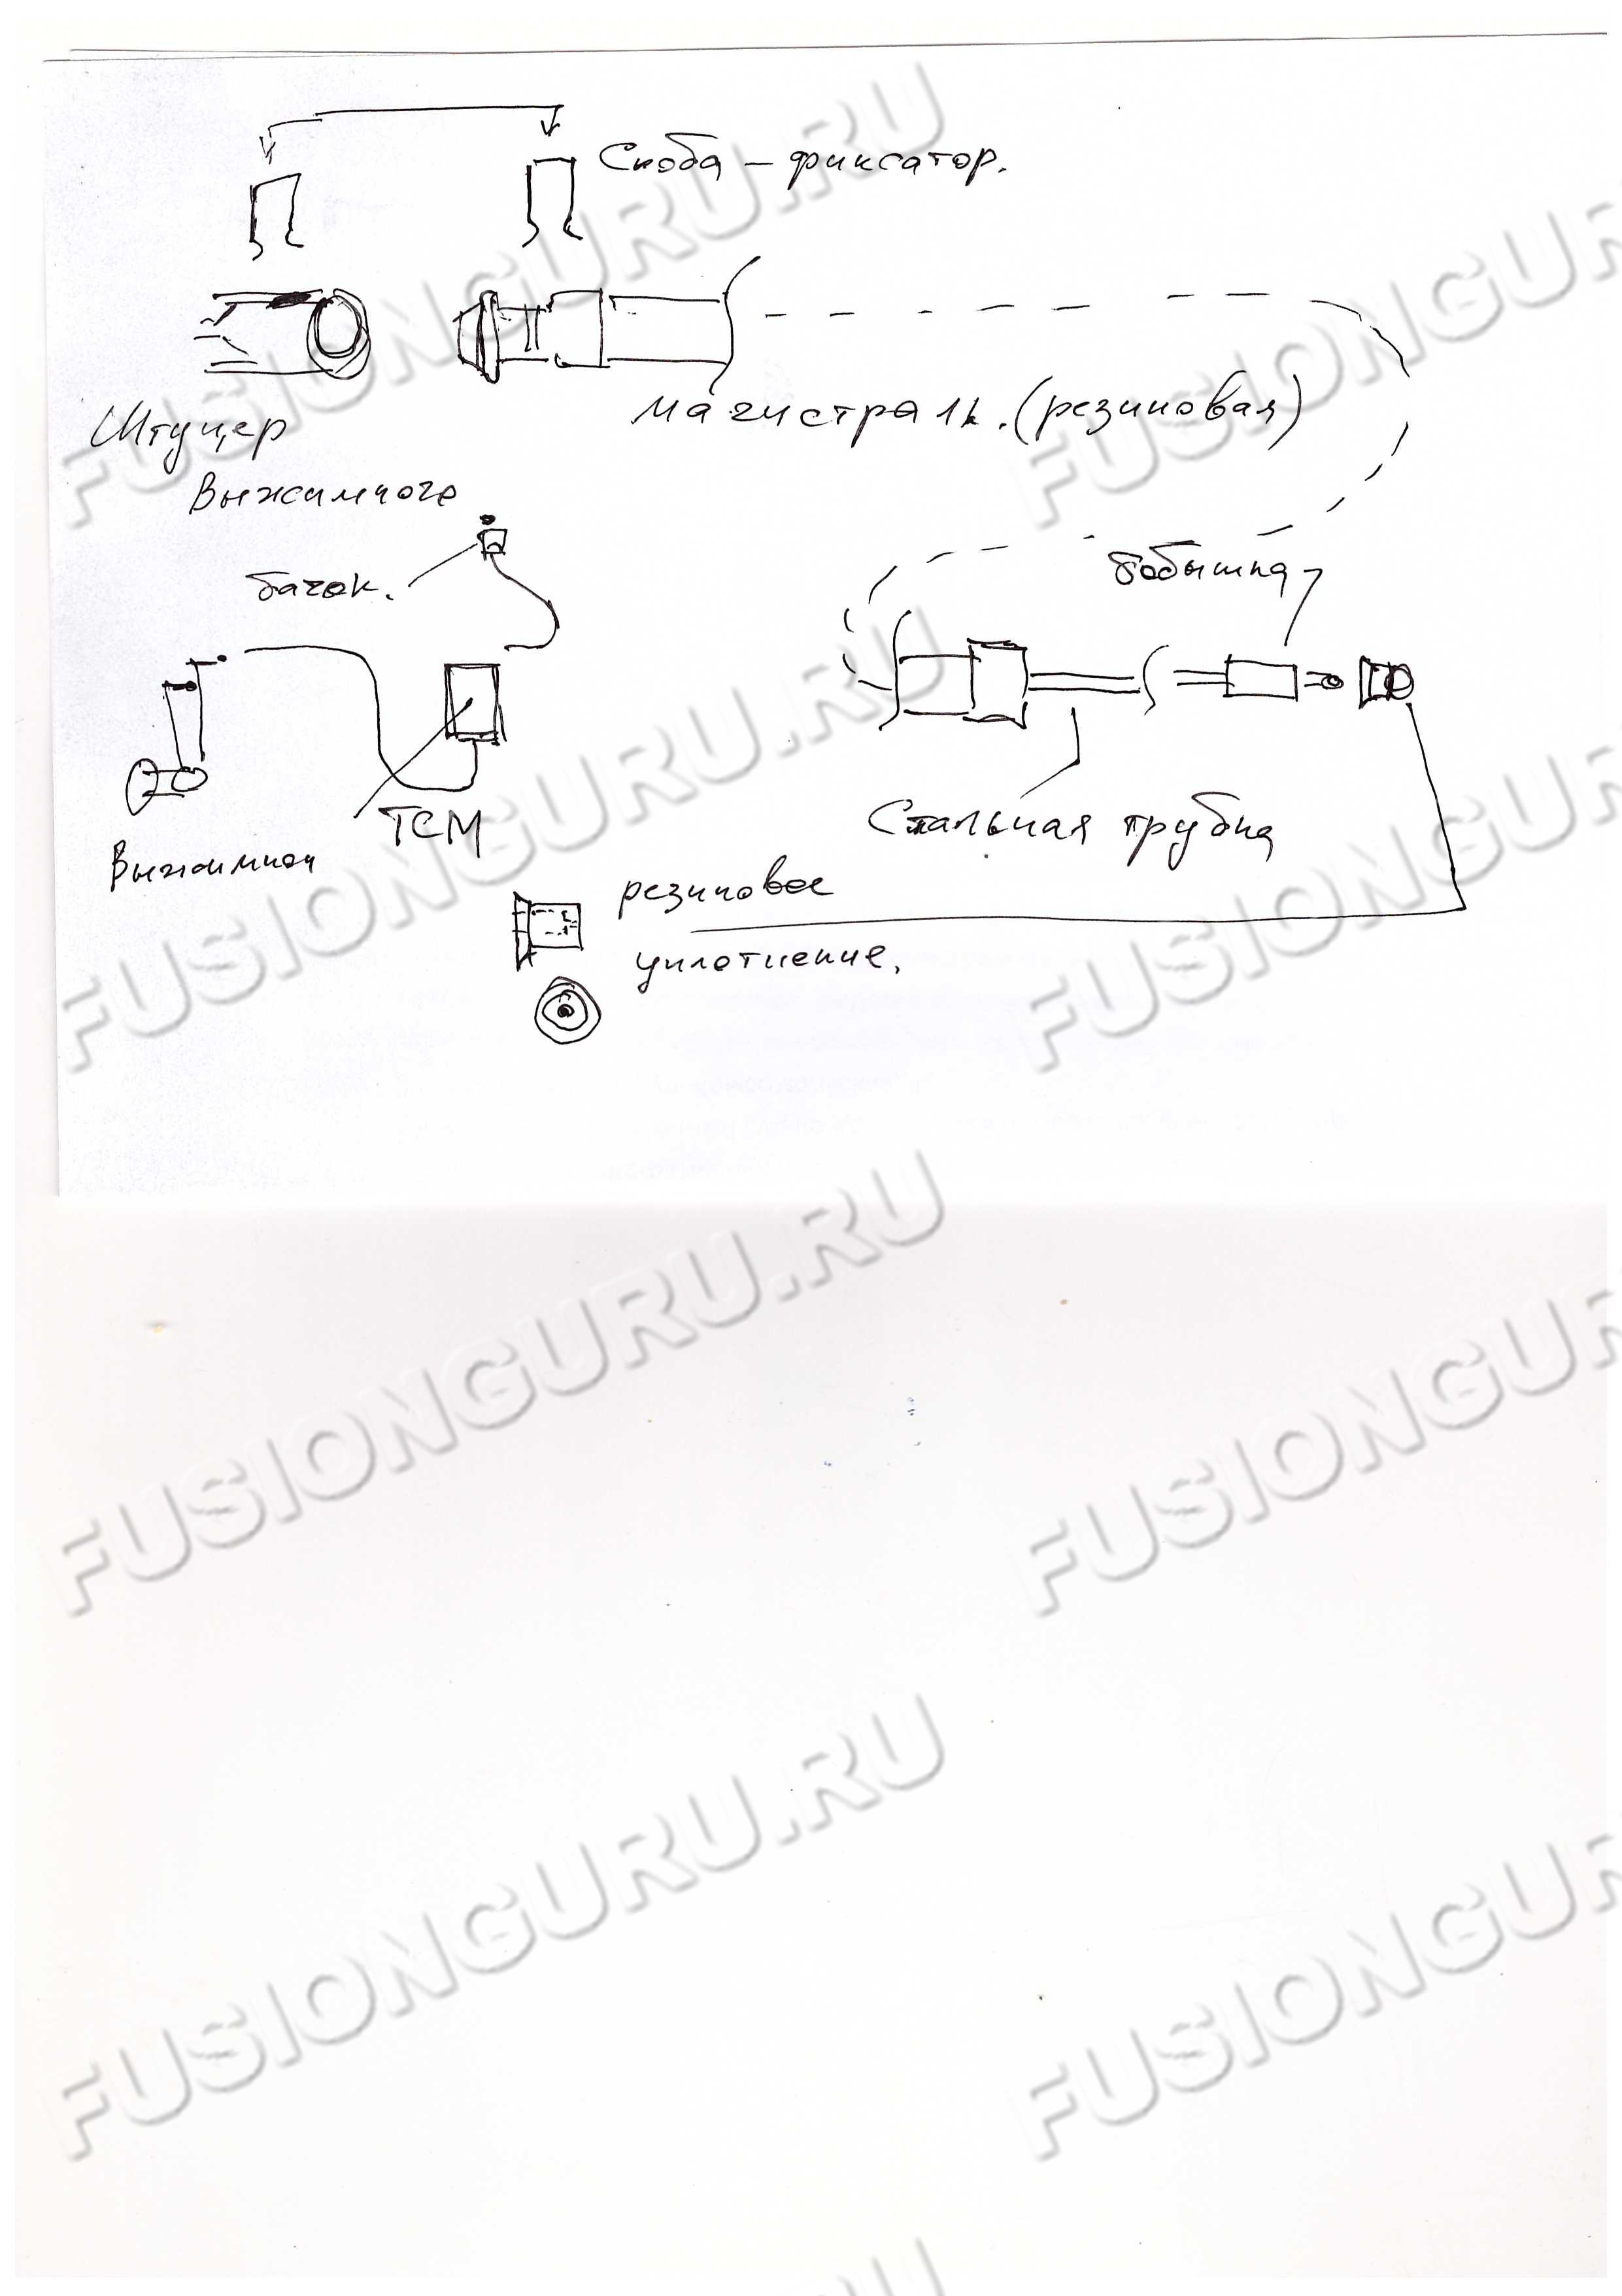 Скоба – фиксатор.
Штуцер
выжимного
магистраль. (резиновая)
бачок.
бобышка
ТСМ
Выжимной
Стальная трубка
резиновое
уплотнение.
FUSIONGURU.RU
FUSIONGUR
FUSIONGURU.RU
FUSIONGUR
FUSIONGURU.RU
FUSIONGUR
FUSIONGURU.RU
FUSIONGUR